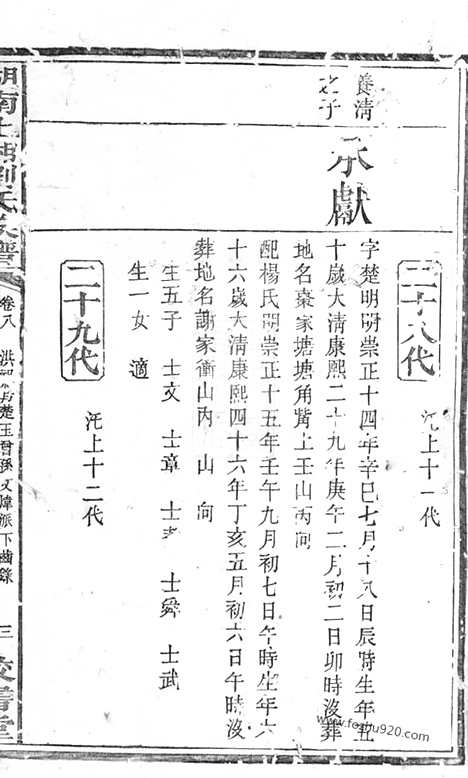 二十八代
沱上十一代
養清
之子
承獻
字楚明明崇正十四年辛巳七月十八日辰時生年五
十歲大清康熙二十九年庚午二月初二日卯時沒葬
地名棗家塘塘角背上壬山丙向
配楊氏明崇正十五年壬午九月初七日午時生年六
十六歲大清康熙四十六年丁亥五月初六日午時沒
葬地名謝家衝山內 山 向
生五子 士文 士章 士孝 士舜 士武
生一女 適
二十九代
沱上十二代
湖南上 劉氏族譜
卷八
洪 楚王曾孫文暐派下齒錄
三
校書堂
www.fozhu920.com